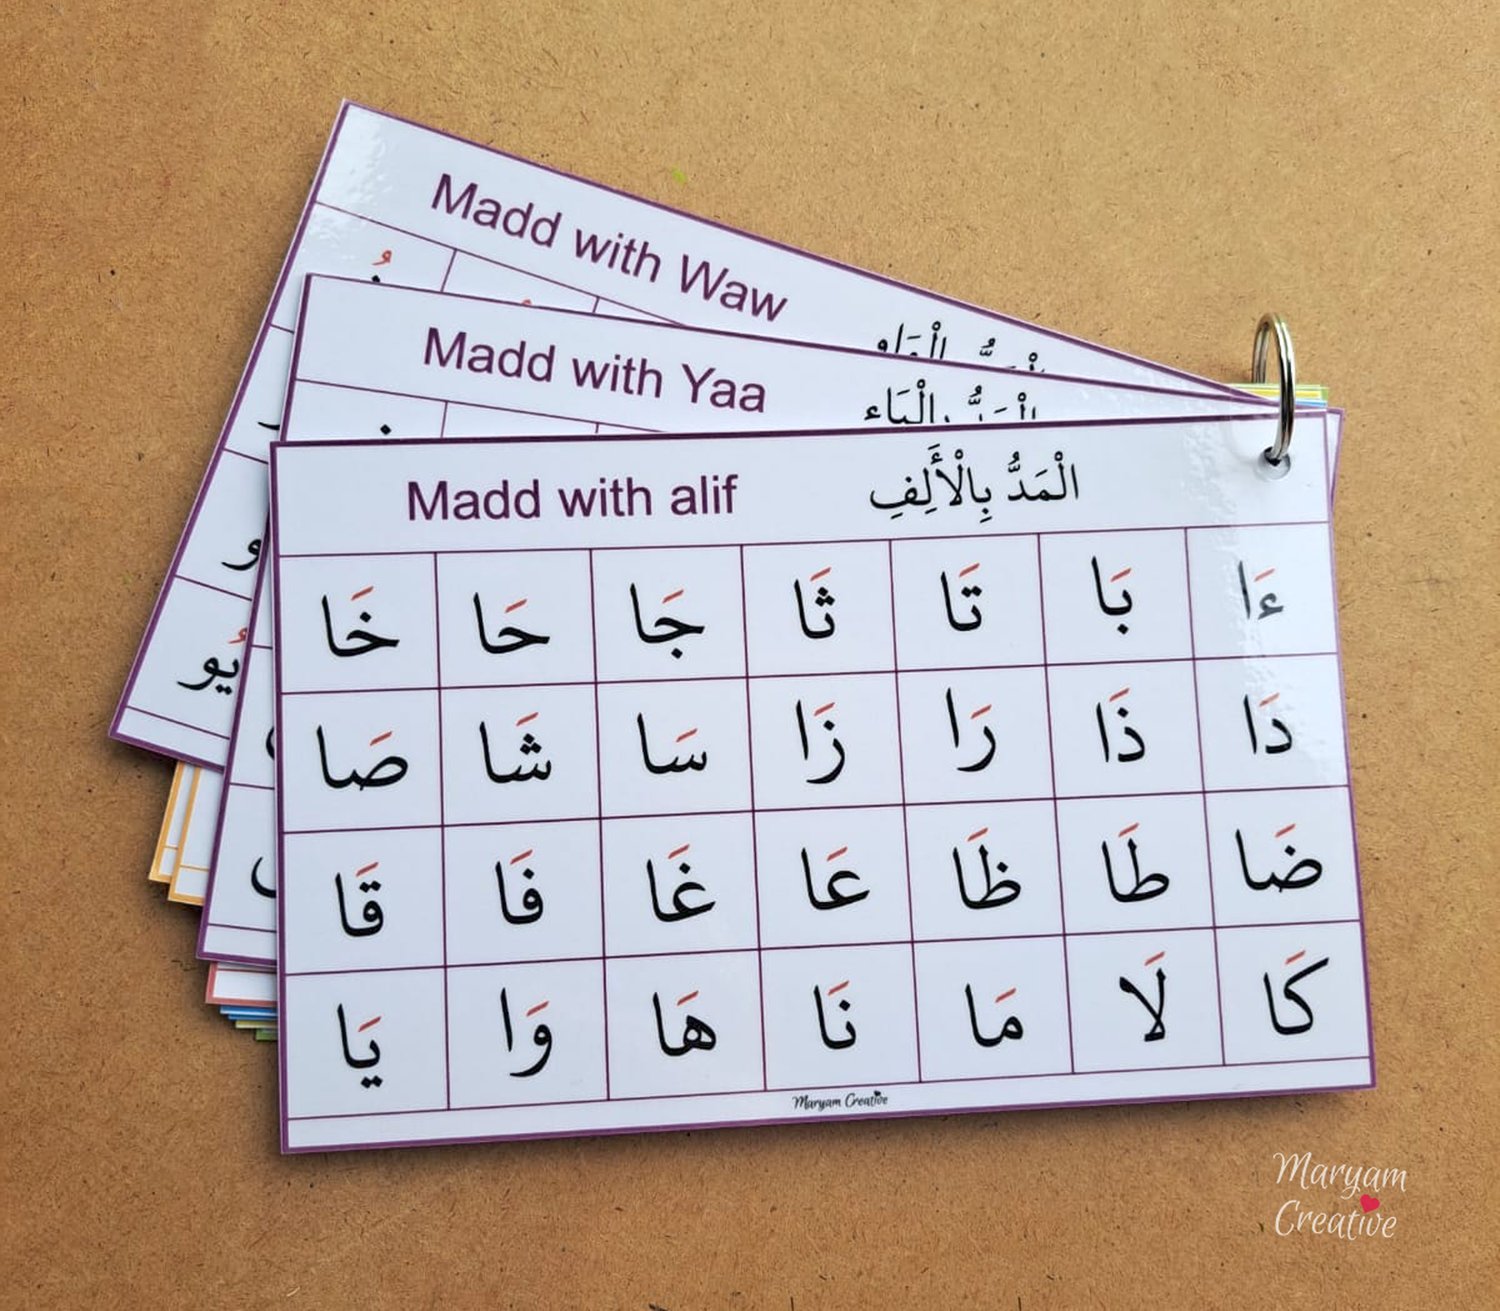 Madd with Waw
Madd with Yaa
Madd with alif الْمَدُّ بِالْأَلِفِ
ءَا بَا تَا ثَا جَا حَا خَا
دَا ذَا رَا زَا سَا شَا صَا
ضَا طَا ظَا عَا غَا فَا قَا
كَا لَا مَا نَا هَا وَا يَا
Maryam Creative
يُو
Maryam
Creative